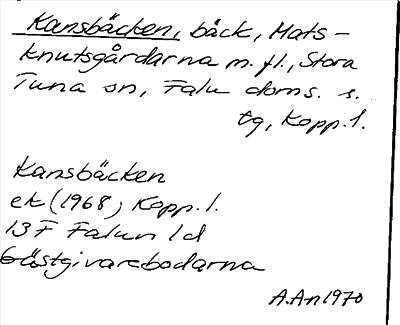 Kansbäcken, bäck, Mats-
knutsgårdarna m. fl., Stora
Tuna sn, Falu doms. s.
tg, Kopp. l.
Kansbäcken
ek (1968) Kopp. l.
13F Falun 1d
Gästgivarebodarna
A.An 1970